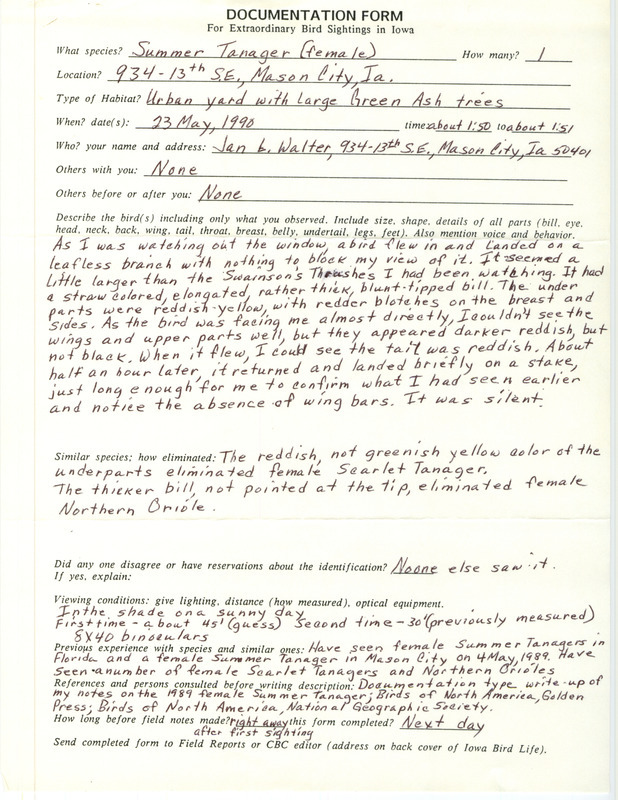 DOCUMENTATION FORM
For Extraordinary Bird Sightings in Iowa
What species? Summer Tanager (female) How many? 1
Location? 934-13th S.E., Mason City, Ia.
Type of Habitat? Urban yard with large Green Ash trees
When? date(s): 23 May, 1990 time: about 1:50 to about 1:51
Who? your name and address: Jan L. Walter, 934-13th S.E., Mason City, Ia 50401
Others with you: None
Others before or after you: None
Describe the bird(s) including only what you observed. Include size, shape, details of all parts (bill, eye,
head, neck, back, wing, tail, throat, breast, belly, undertail, legs, feet). Also mention voice and behavior.
As I was watching out the window, a bird flew in and landed on a
leafless branch with nothing to block my view of it. It seemed a
little larger than the Swainson's Thrushes I had been watching. It had
a straw colored, elongated, rather thick, blunt-tipped bill. The under
parts were reddish-yellow, with redder blotches on the breast and
sides. As the bird was facing me almost directly, I couldn't see the
wings and upper parts well, but they appeared darker reddish, but
not black. When it flew, I could see the tail was reddish. About
half an hour later, it returned and landed briefly on a stake,
just long enough for me to confirm what I had seen earlier
and notice the absence of wing bars. It was silent.
Similar species; how eliminated: The reddish, not greenish yellow color of the
underparts eliminated female Scarlet Tanager.
The thicker bill, not pointed at the tip, eliminated female
Northern Oriole.
Did any one disagree or have reservations about the identification? Noone else saw it.
If yes, explain:
Viewing conditions: give lighting, distance (how measured), optical equipment.
In the shade on a sunny day
First time - about 45' (guess) Second time - 30' (previously measured)
8X40 binoculars
Previous experience with species and similar ones: Have seen female Summer Tanagers in
Florida and a female Summer Tanager in Mason City on 4 May, 1989. Have
seen a number of female Scarlet Tanagers and Northern Orioles
References and persons consulted before writing description: Documentation type write-up of
my notes on the 1989 female Summer Tanager; Birds of North America, Golden
Press; Birds of North America, National Geographic Society.
How long before field notes made? right away this form completed? Next day
after first sighting
Send completed form to Field Reports or CBC editor (address on back cover of Iowa Bird Life).